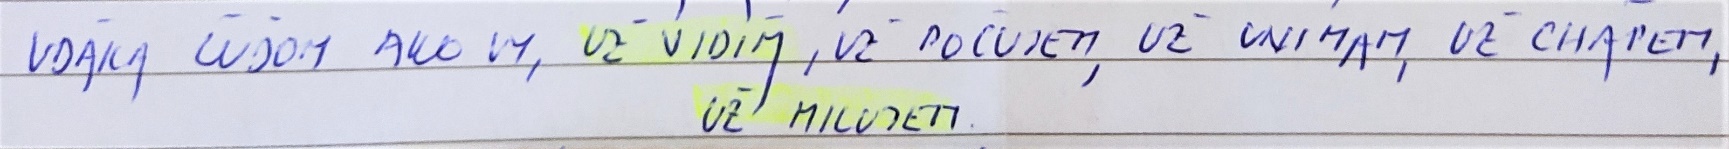 VĎAKA ĽUĎOM AKO VY, UŽ VIDÍM, UŽ POČUJEM, UŽ VNÍMAM, UŽ CHÁPEM,
UŽ MILUJEM.